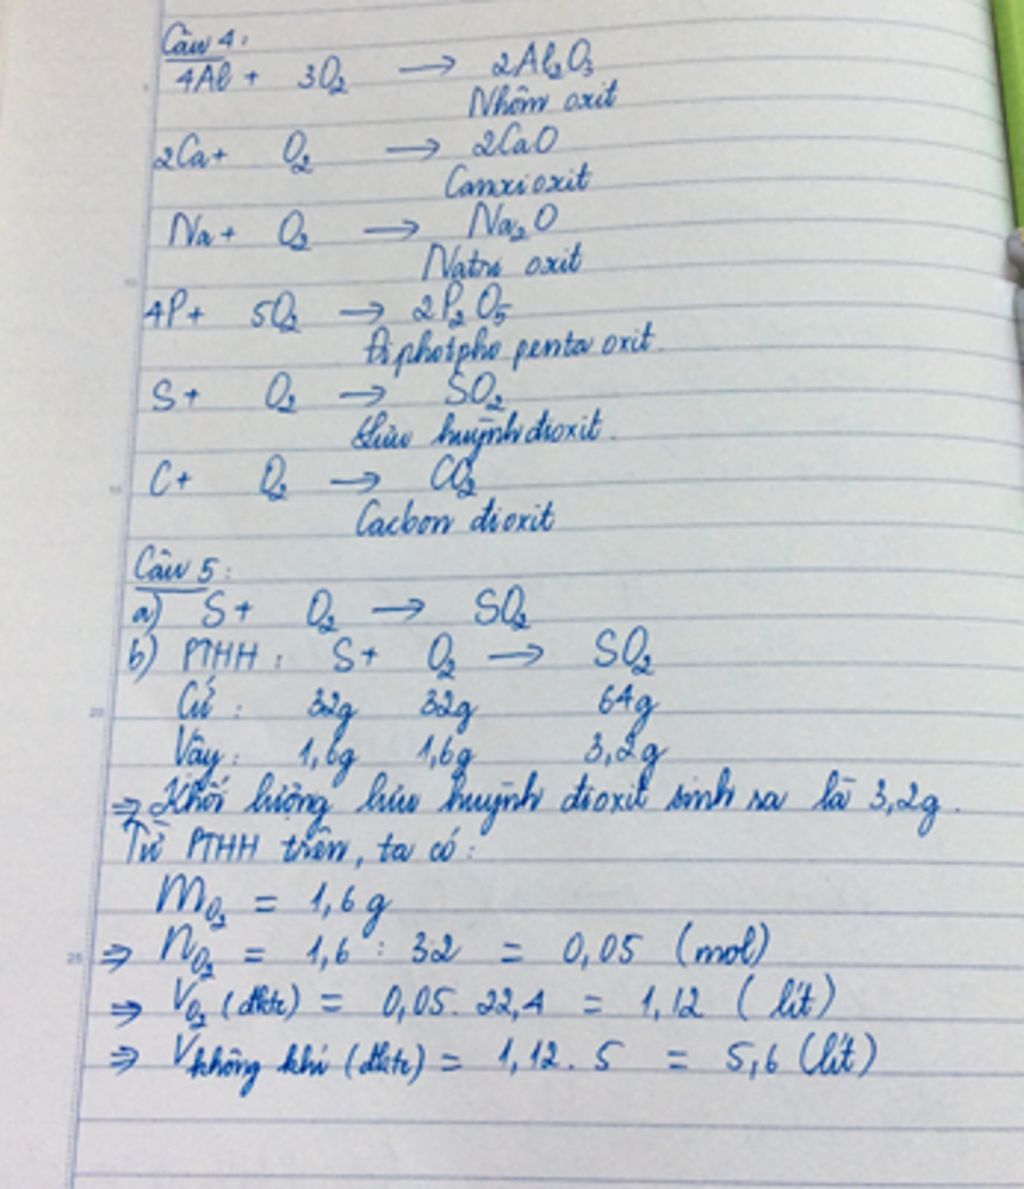 Câu 4:
4Al + 3O₂ → 2Al₂O₃
Nhôm oxit
2Ca + O₂ → 2CaO
Canxi oxit
Na + O₂ → Na₂O
Natri oxit
4P + 5O₂ → 2P₂O₅
Điphotpho penta oxit.
S + O₂ → SO₂
Lưu huỳnh đioxit.
C + O₂ → CO₂
Cacbon đioxit
Câu 5:
a) S + O₂ → SO₂
b) PTHH: S + O₂ → SO₂
Cứ: 32g 32g 64g
Vậy: 1,6g 1,6g 3,2g
⇒ Khối lượng lưu huỳnh đioxit sinh ra là 3,2g.
Từ PTHH trên, ta có:
mO₂ = 1,6g
⇒ nO₂ = 1,6 : 32 = 0,05 (mol)
⇒ VO₂ (đktc) = 0,05. 22,4 = 1,12 (lít)
⇒ Vkhông khí (đktc) = 1,12. 5 = 5,6 (lít)